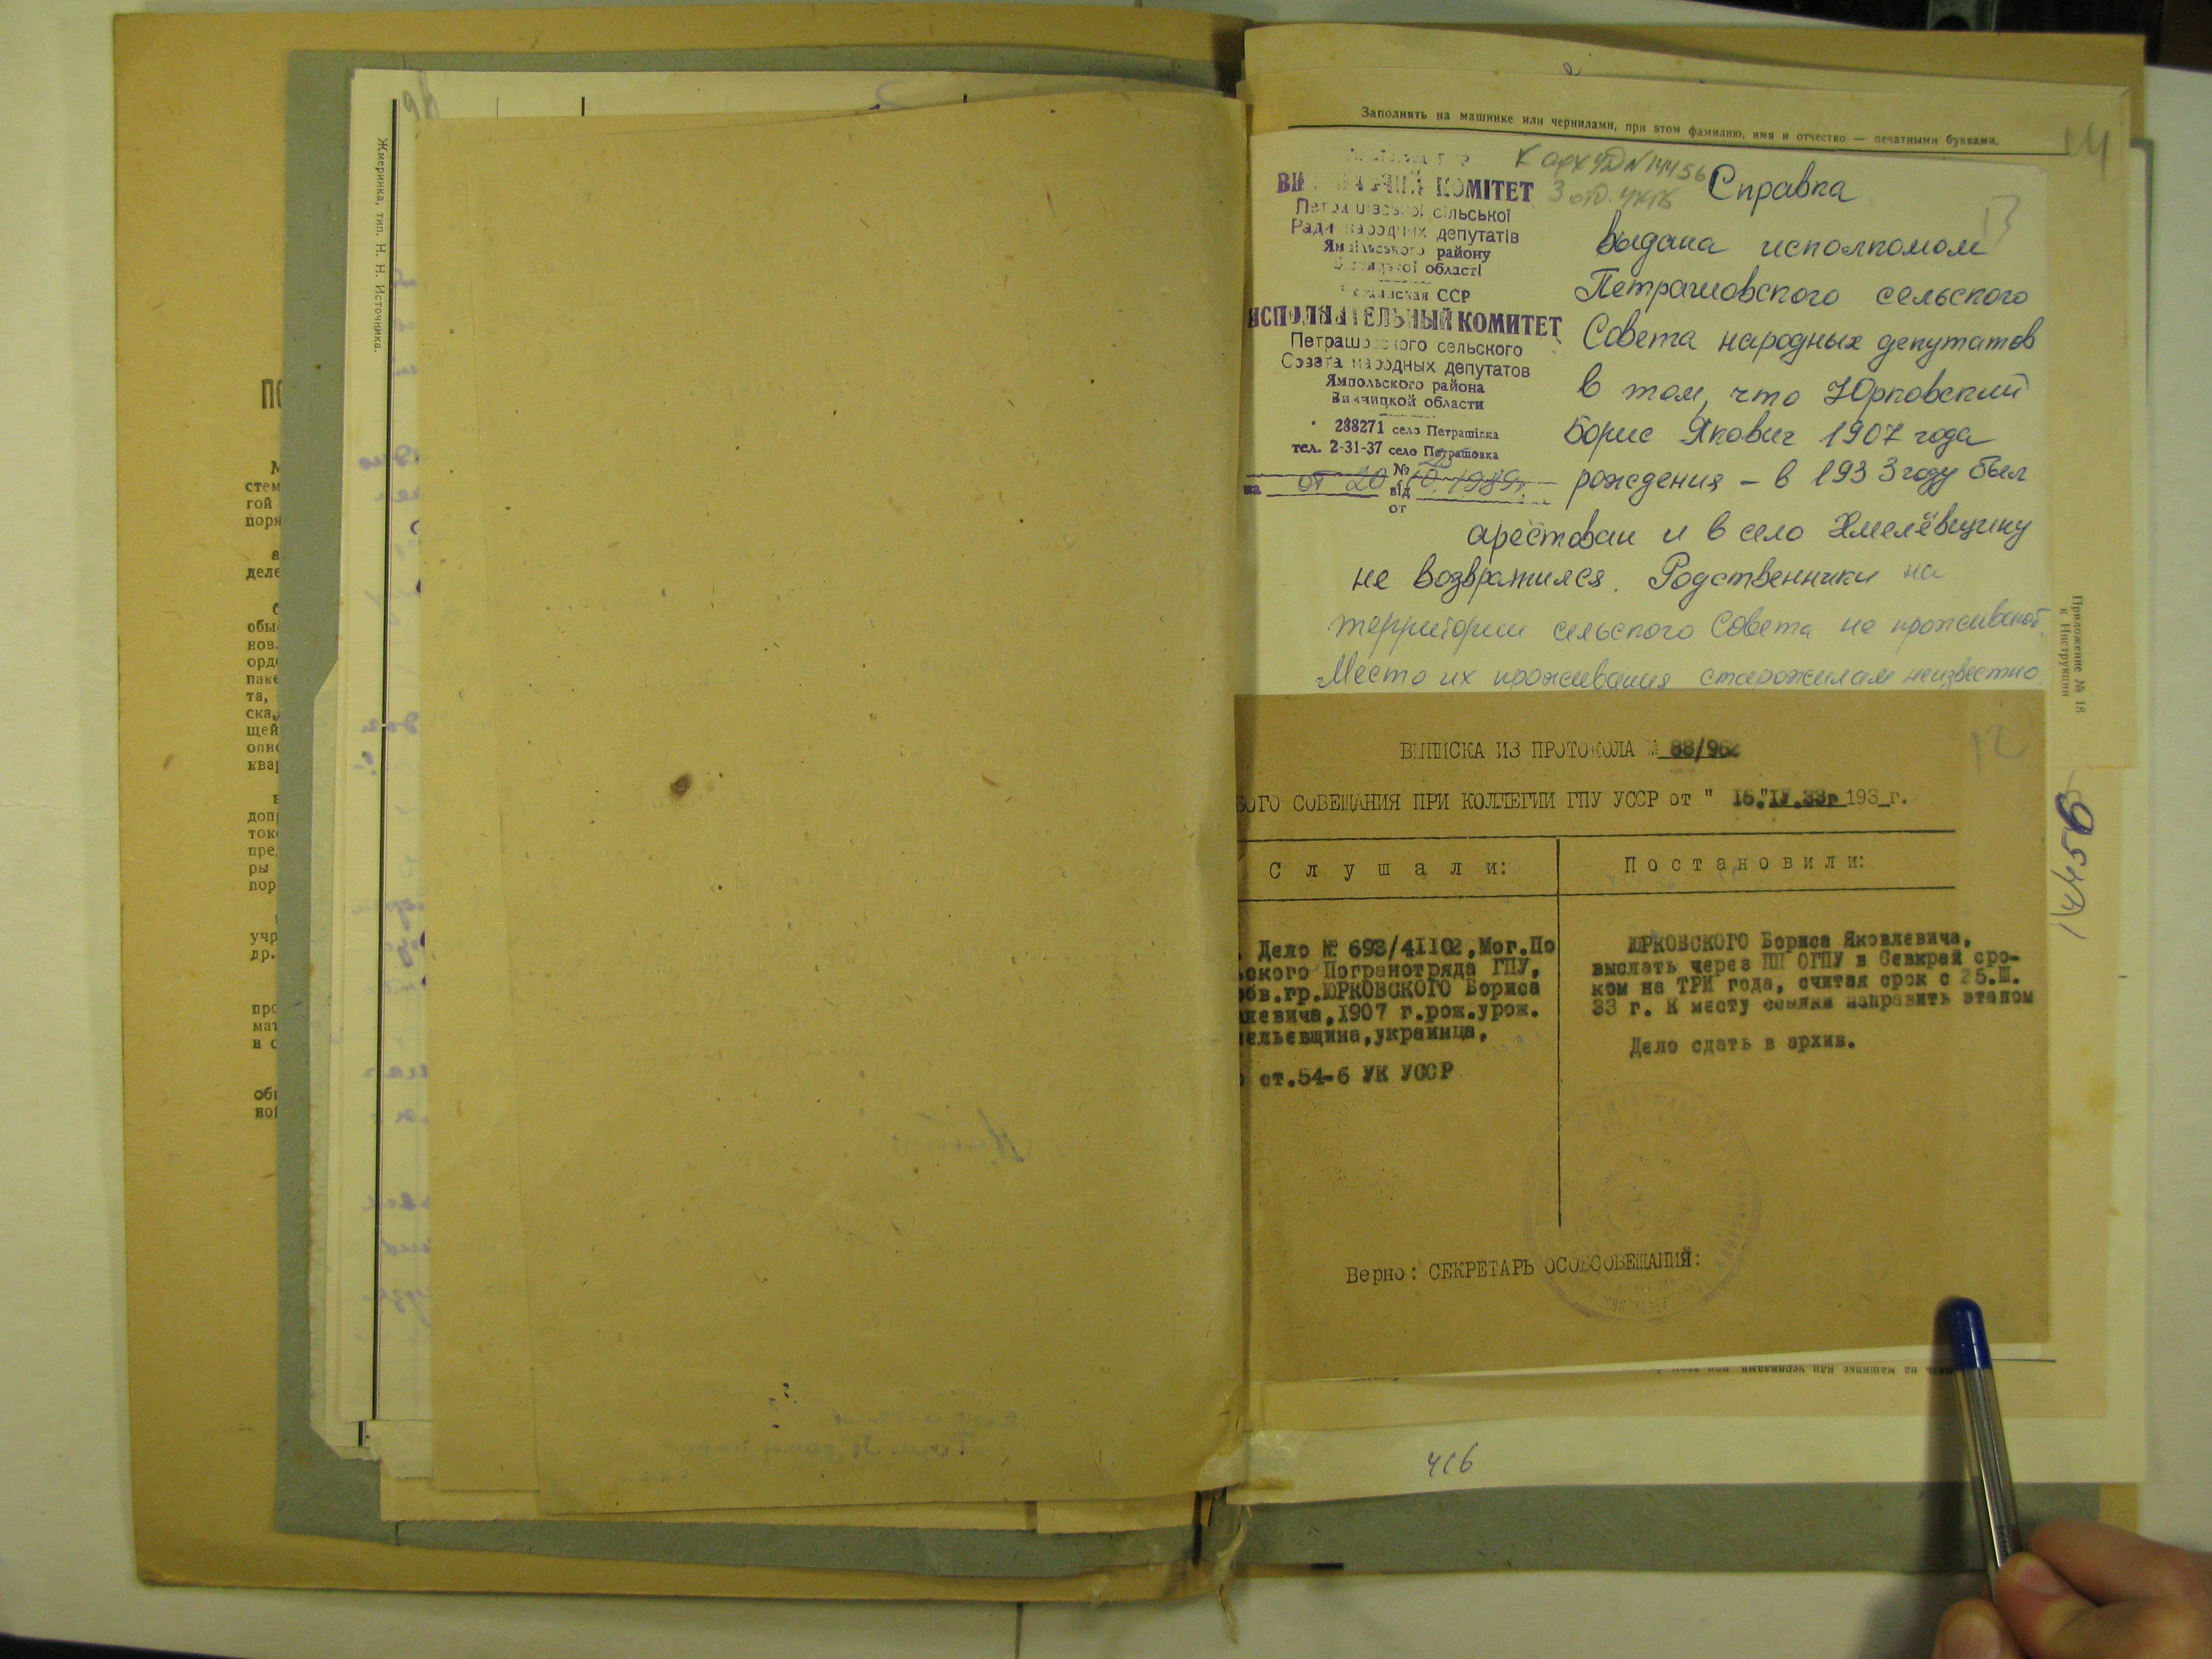 Жмеринка, тип. Н. Н. Источника.
ПО
М
стем
гой
поря
деле
обы
нов.
орде
паке
та,
ска,
щей
опис
квар
в
допр
токо
пре
ры
пор
учр
др.
про
мат
и с
обр
ной
Заполнять на машинке или чернилами, при этом фамилию, имя и отчество — печатными буквами.
14
К арх УД N 14456
3 отд. УКГБ
КОМІТЕТ
Петрашівської сільської
Ради народних депутатів
Ямпільського району
Вінницької області
Украинская ССР
ИСПОЛНИТЕЛЬНЫЙ КОМИТЕТ
Петрашовского сельского
Совета народных депутатов
Ямпольского района
Винницкой области
288271 село Петрашівка
тел. 2-31-37 село Петрашовка
№
на от 20 від 10.1989г.
от
Справка
13
выдана исполкомом
Петрашовского сельского
Совета народных депутатов
в том, что Юрковский
Борис Якович 1907 года
рождения – в 1933 году был
арестован и в село Хмелёвщину
не возвратился. Родственники на
территории сельского Совета не проживают.
Место их проживания старожилам неизвестно.
Приложение № 18
к Инструкции
14456
12
ВЫПИСКА ИЗ ПРОТОКОЛА № 88/962
БОГО СОВЕЩАНИЯ ПРИ КОЛЛЕГИИ ГПУ УССР от " 16."IУ.33г 193_г.
Слушали:
Постановили:
. Дело № 693/41102,Мог.По
ьского Погранотряда ГПУ,
обв.гр.ЮРКОВСКОГО Бориса
влевича,1907 г.рож.урож.
мельевщина,украинца,
о ст.54-6 УК УССР
ЮРКОВСКОГО Бориса Яковлевича,
выслать через ПП ОГПУ в Севкрай сро-
ком на ТРИ года, считая срок с 25.Ш.
33 г. К месту ссылки направить этапом
Дело сдать в архив.
Верно: СЕКРЕТАРЬ ОСОБСОВЕЩАНИЯ:
ять на машинке или чернилами, при этом
416